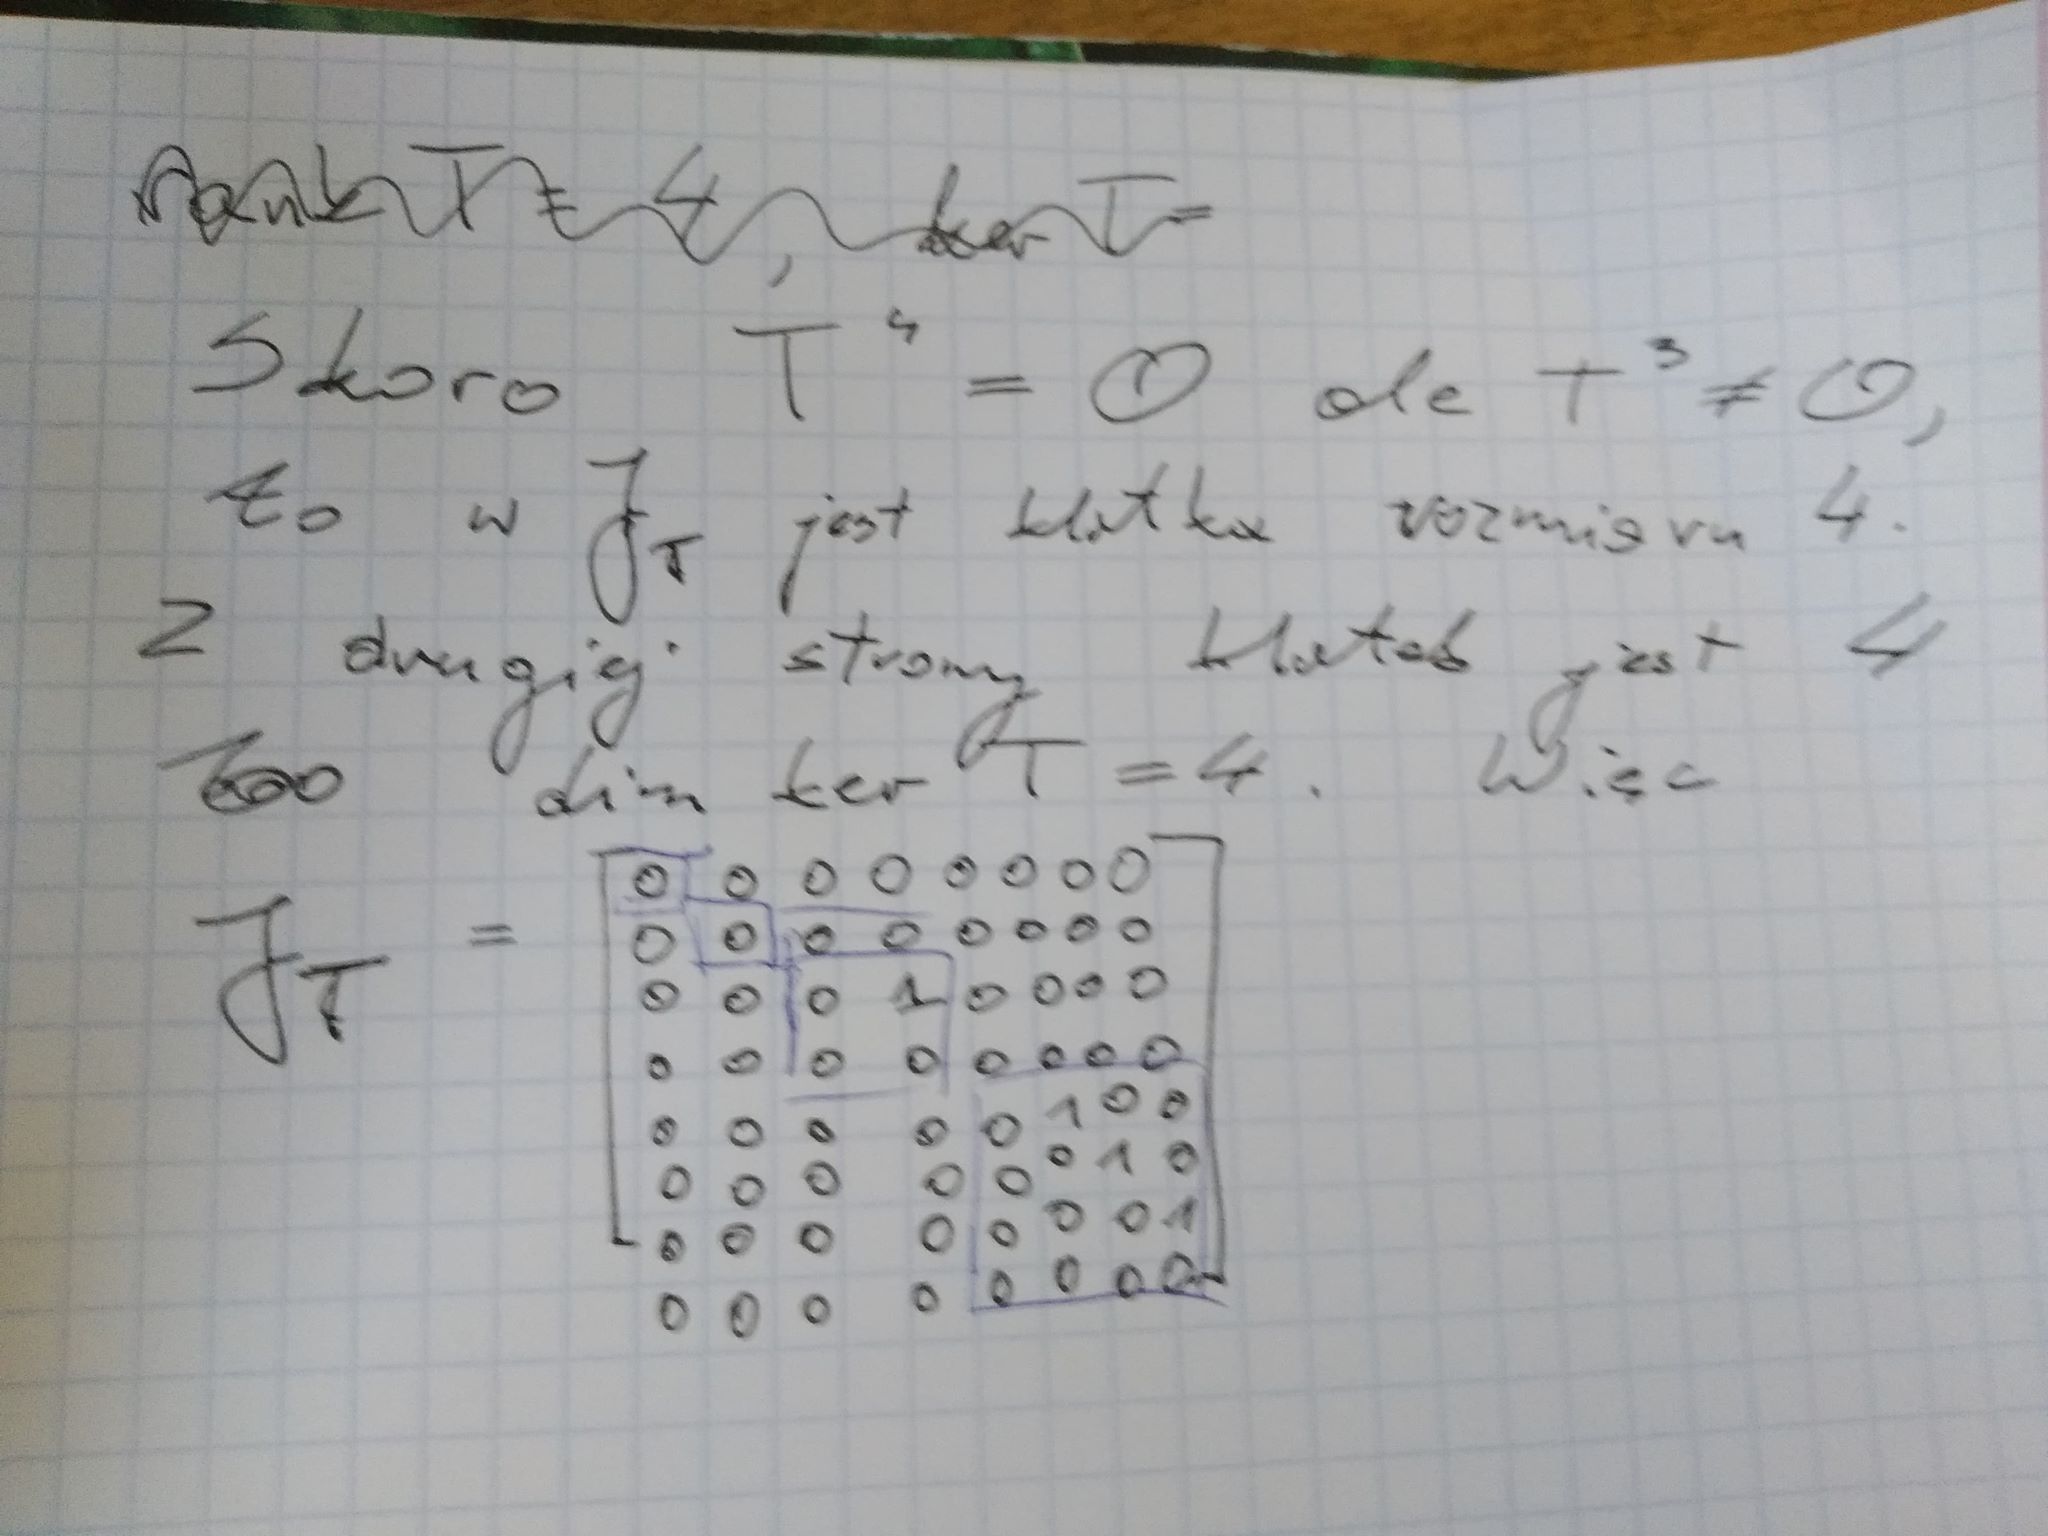 rank T = 4, ker T =
Skoro T⁴ = 0 ale T³ ≠ 0,
to w J_T jest klatka rozmiaru 4.
Z drugiej strony klatek jest 4
bo dim ker T = 4. Więc
J_T =
0 0 0 0 0 0 0 0
0 0 0 0 0 0 0 0
0 0 0 1 0 0 0 0
0 0 0 0 0 0 0 0
0 0 0 0 0 1 0 0
0 0 0 0 0 0 1 0
0 0 0 0 0 0 0 1
0 0 0 0 0 0 0 0